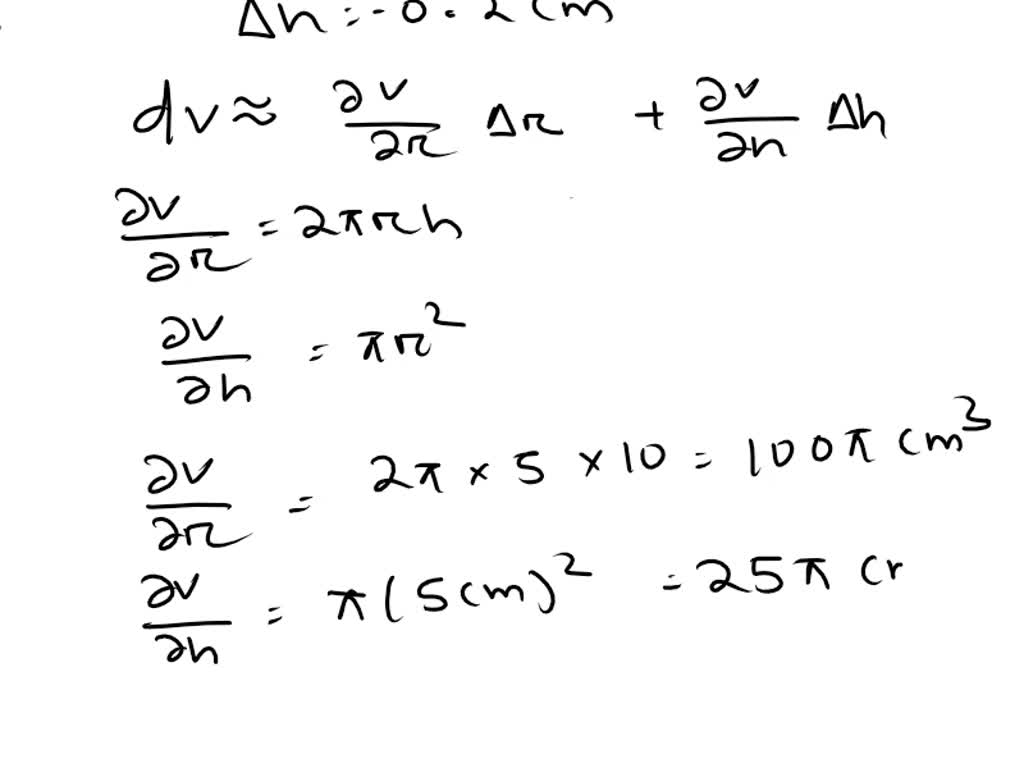 Δh = -0.2 cm
dv ≈ ∂v/∂r Δr + ∂v/∂h Δh
∂v/∂r = 2πrh
∂v/∂h = πr²
∂v/∂r = 2π × 5 × 10 = 100π cm³
∂v/∂h = π(5cm)² = 25π cr